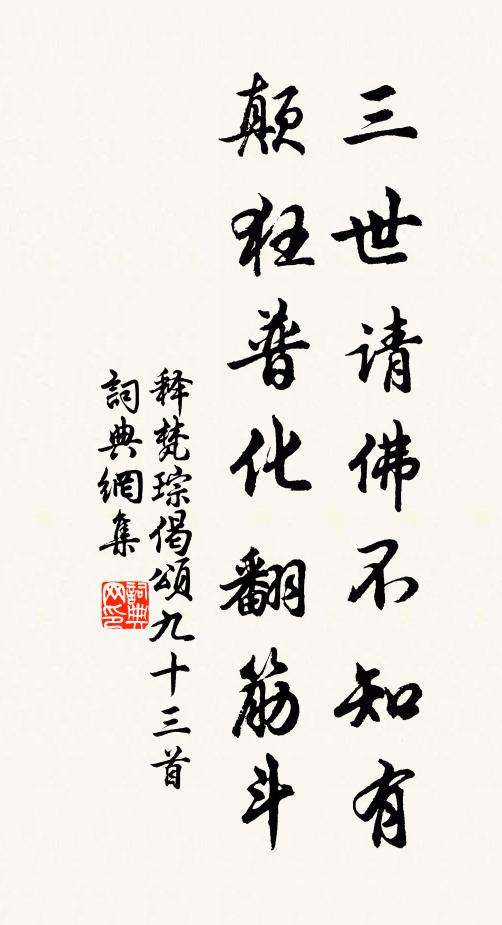 三世请佛不知有
颠狂普化翻筋斗
释梵琮偈颂九十三首
詞典網集
詞典网印